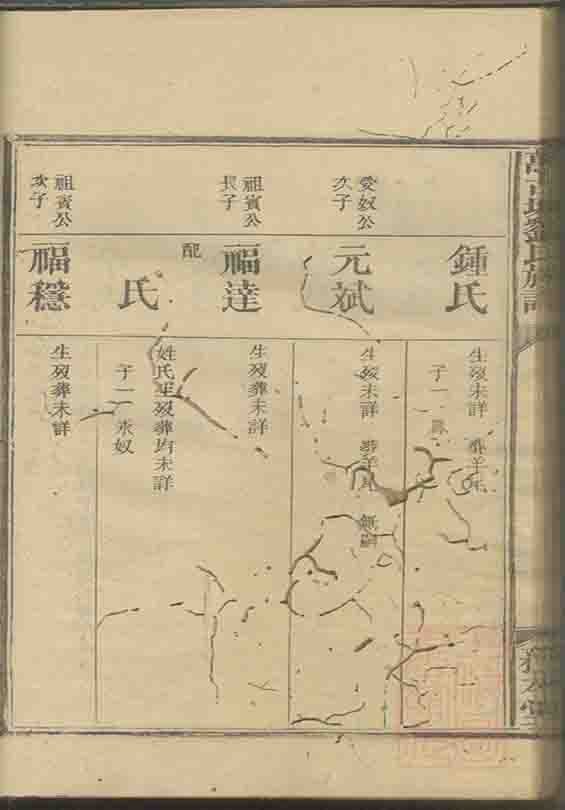 劉氏族譜
鍾氏
生歿未詳 葬羊
子一
愛奴公
次子
元斌
生歿未詳 葬羊 無嗣
祖賓公
長子
福達
生歿葬未詳
配
氏
姓氏生歿葬均未詳
子一 永奴
祖賓公
次子
福穩
生歿葬未詳